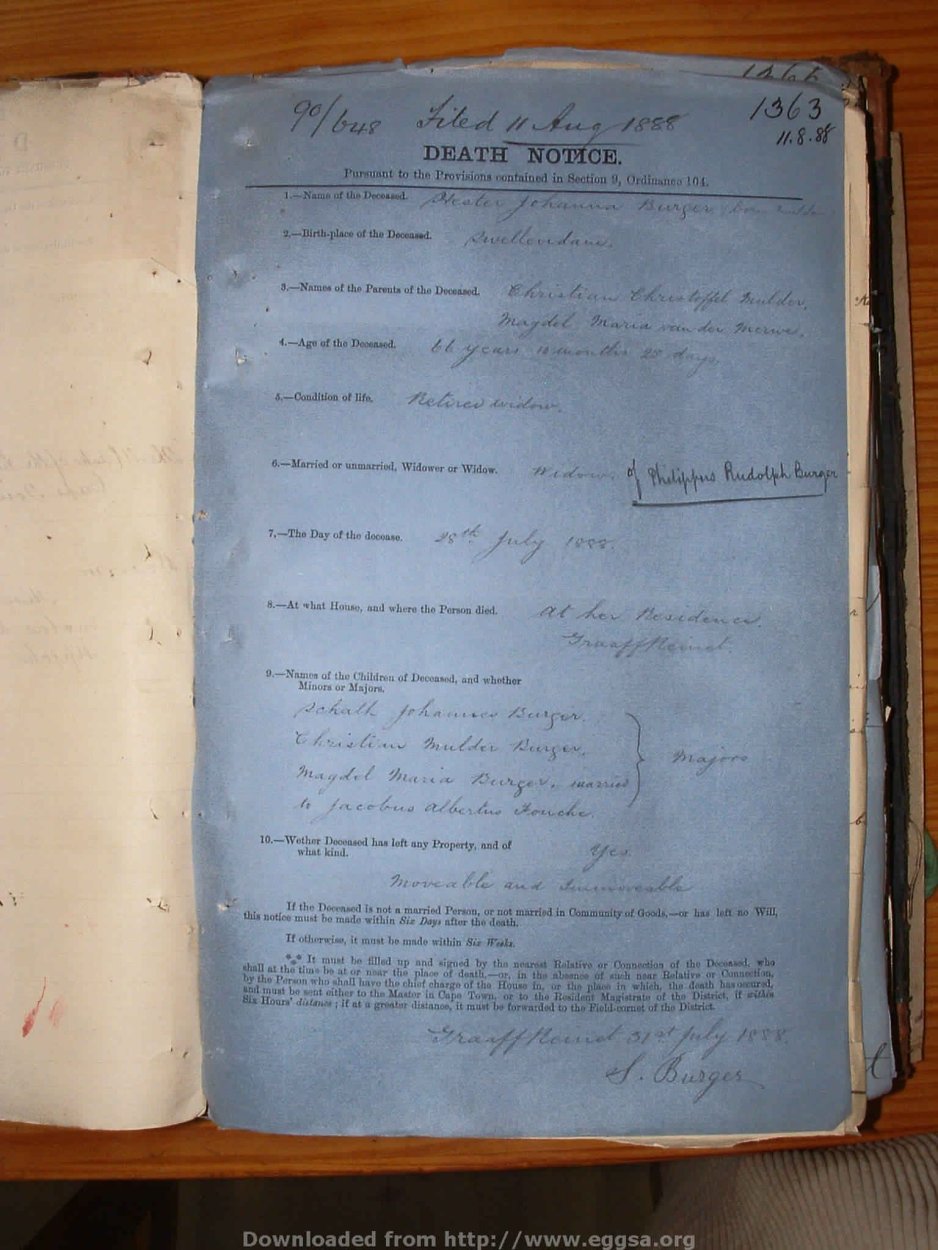 1266
90/648 Filed 11 Aug 1888
1363
11.8.88
DEATH NOTICE.
Pursuant to the Provisions contained in Section 9, Ordinance 104.
1.—Name of the Deceased. Hester Johanna Burger born Mulder
2.—Birth-place of the Deceased. Swellendam.
3.—Names of the Parents of the Deceased. Christian Christoffel Mulder,
Magdel Maria van der Merwe.
4.—Age of the Deceased. 66 years 10 months 28 days.
5.—Condition of life. Retired widow.
6.—Married or unmarried, Widower or Widow. Widow. of Philippus Rudolph Burger
7.—The Day of the decease. 28th July 1888.
8.—At what House, and where the Person died. At her Residence.
Graaff Reinet.
9.—Names of the Children of Deceased, and whether
Minors or Majors.
Schalk Johannes Burger.
Christian Mulder Burger.
Magdel Maria Burger, married
to Jacobus Albertus Fouche.
Majors
10.—Wether Deceased has left any Property, and of
what kind.
Yes
Moveable and Immoveable
If the Deceased is not a married Person, or not married in Community of Goods,—or has left no Will,
this notice must be made within Six Days after the death.
If otherwise, it must be made within Six Weeks.
*** It must be filled up and signed by the nearest Relative or Connection of the Deceased, who
shall at the time be at or near the place of death,—or, in the absence of such near Relative or Connection,
by the Person who shall have the chief charge of the House in, or the place in which, the death has occured,
and must be sent either to the Master in Cape Town, or to the Resident Magistrate of the District, if within
Six Hours' distance; if at a greater distance, it must be forwarded to the Field-cornet of the District.
Graaff Reinet 31st July 1888.
S. Burger
Downloaded from http://www.eggsa.org